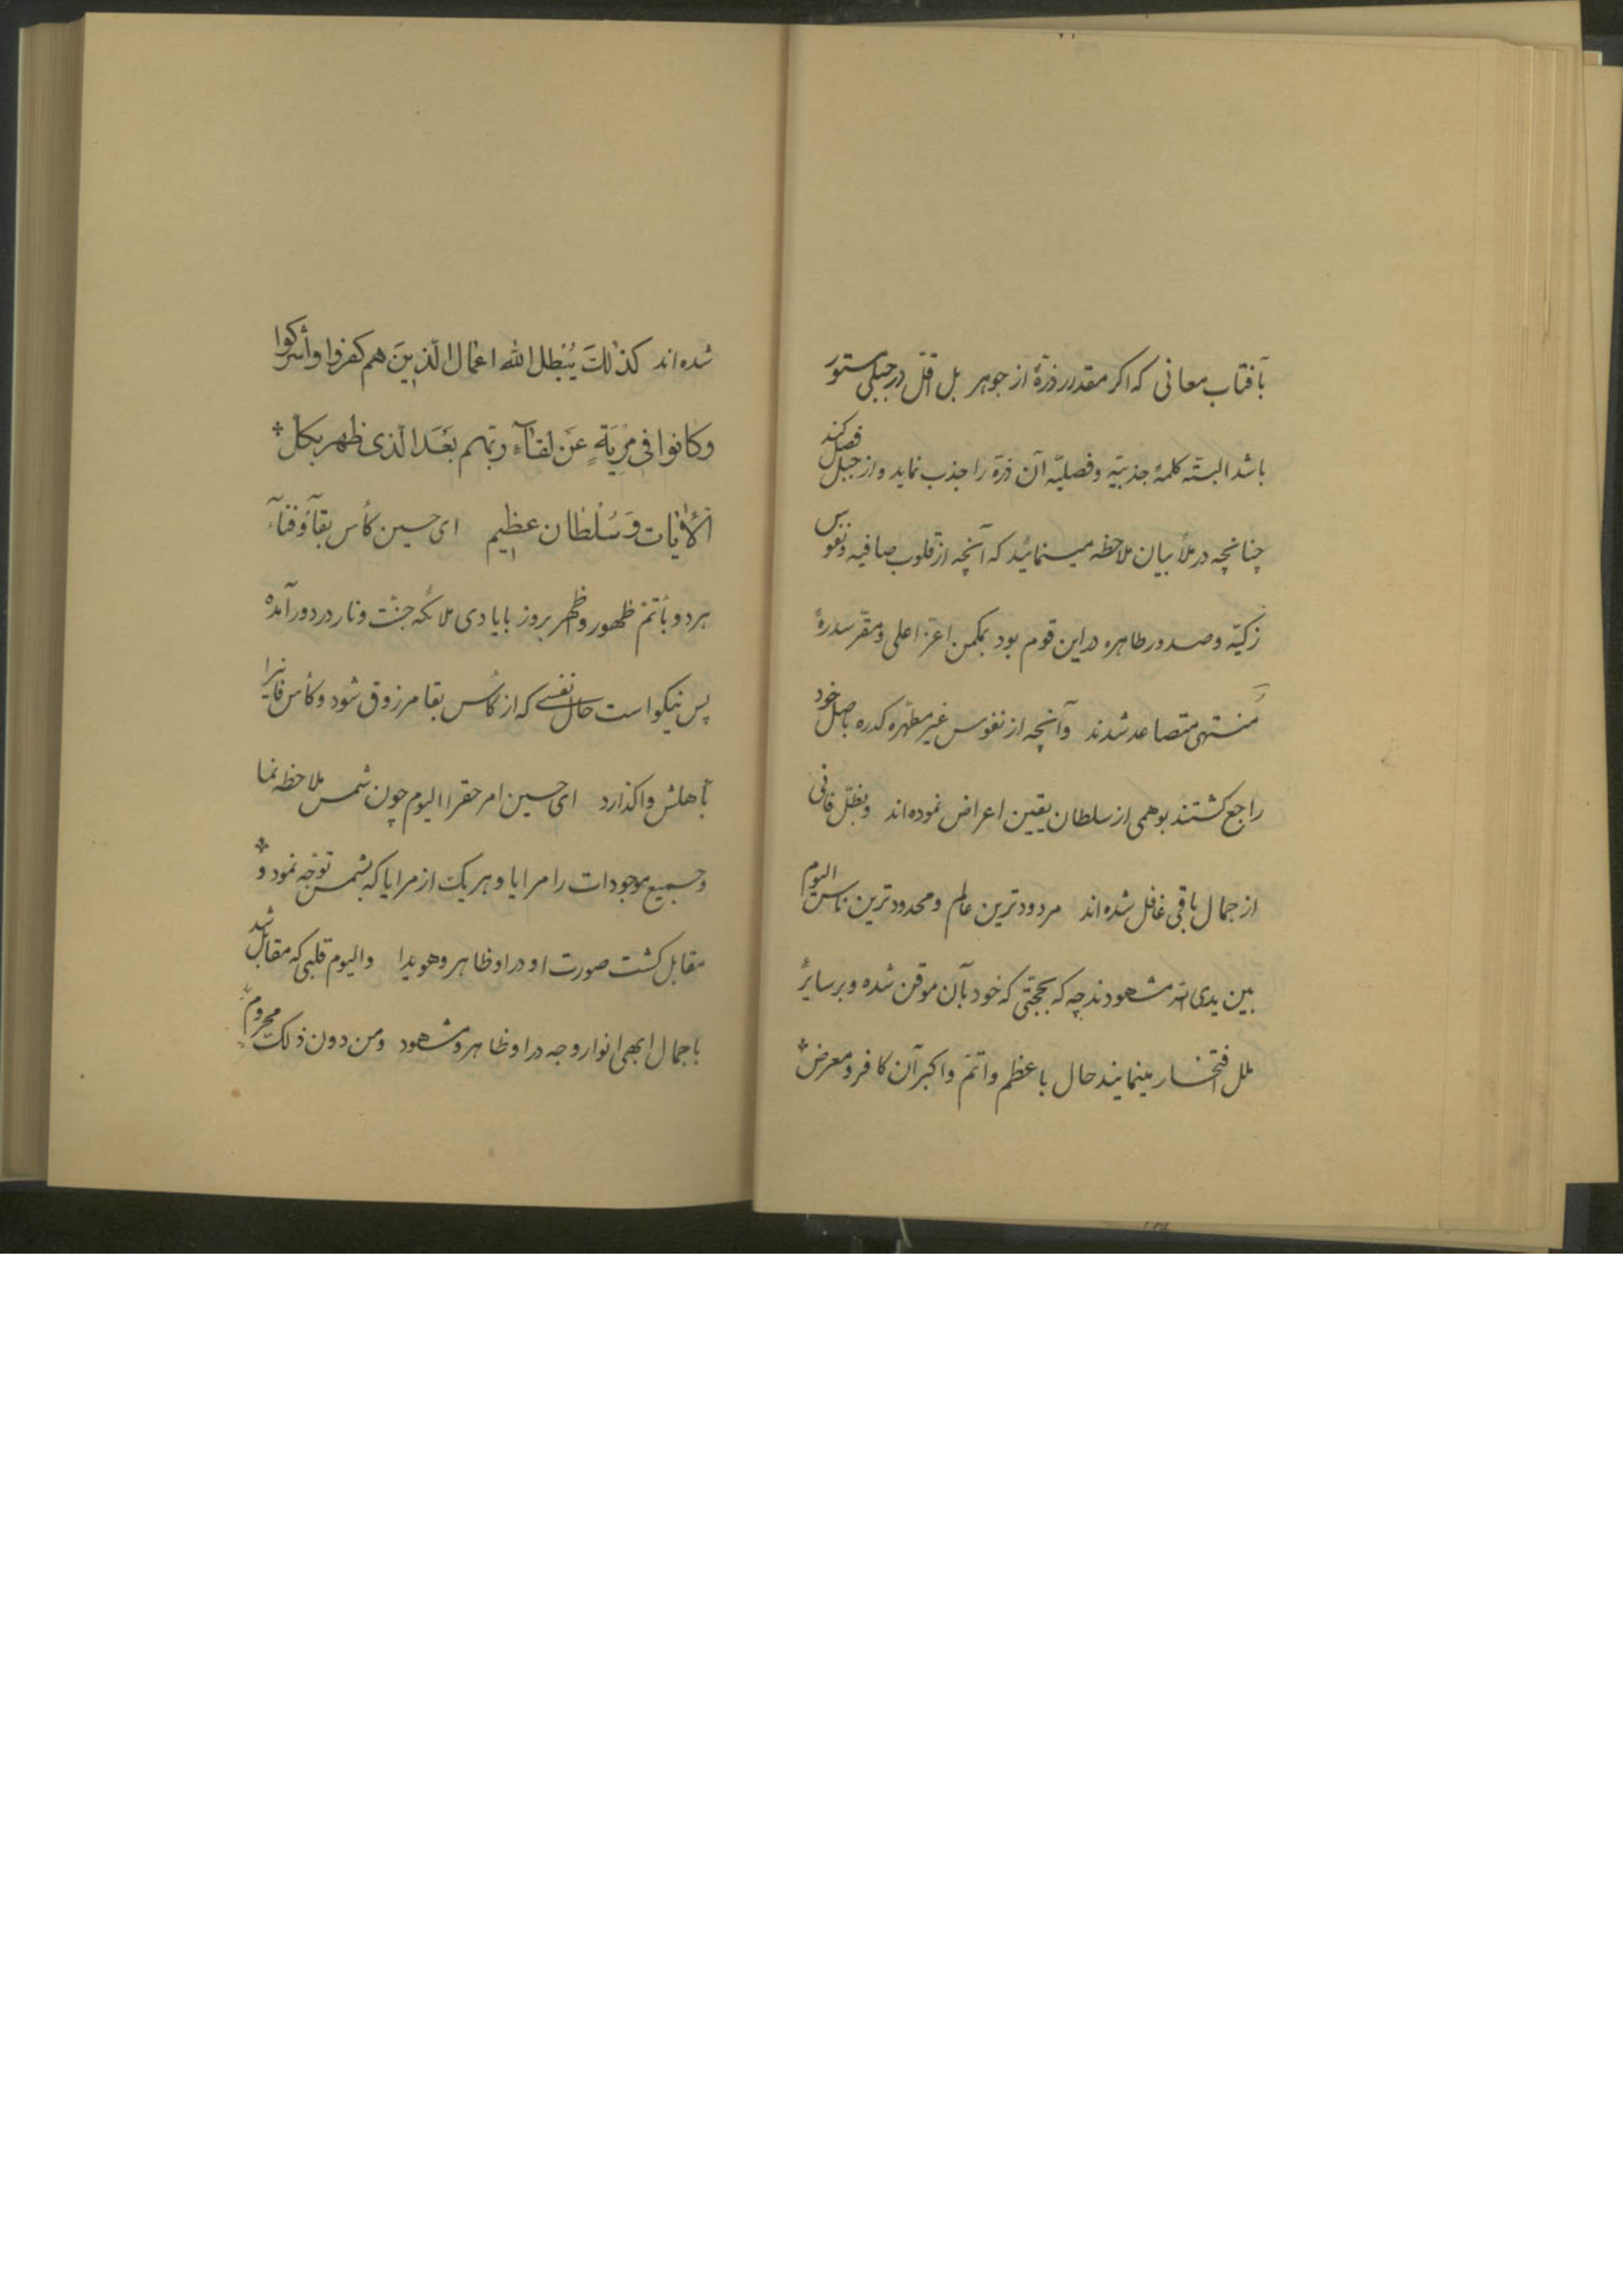 بآفتاب معانی که اکر مقدار ذرّهٔ از جوهر بل اقلّ در جبلی مستور
باشد البتّه کلمهٔ جذبیّه و فصلیّه آن ذرّه را جذب نماید و از جبل فصل کند
چنانچه در ملأ بیان ملاحظه مینمائید که آنچه از قلوب صافیه و نفوس
زکیّه و صدور طاهره در این قوم بود بمکمن اعزّ اعلی و مقرّ سدرهٔ
منتهی متصاعد شدند وآنچه از نفوس غیر مطهّره کدره باصل خود
راجع کشتند بوهمی از سلطان یقین اعراض نموده‌اند وبظلّ فانی
از جمال باقی غافل شده‌اند مردودترین عالم و محدودترین ناس الیوم
بین یدی الله مشهودند چه که بحجّتی که خود بآن موقن شده و بر سایر
ملل افتخار مینمایند حال باعظم و اتمّ و اکبر آن کافر و معرض
شده‌اند کذٰلکَ یُبْطل الله اعمٰال الّذینَ هم کفروا وأشرکوا
وکانوا فی مِرْیَةٍ عَن لقٰآء ربّهم بعَدَ الّذی ظهر بکلّ
الْأٰیٰات وَسُلْطٰان عظیم ای حسین کأس بقآء وفنآء
هر دو بأتمّ ظهور و اظهر بروز بایادی ملائکه جنّت و نار در دور آمده
پس نیکو است حال نفسی که از کأس بقا مرزوق شود و کأس فانیرا
بأهلش واکذارد ای حسین امر حقرا الیوم چون شمس ملاحظه نما
وجمیع موجودات را مرایا و هریک از مرایا که بشمس توجّه نمود و
مقابل کشت صورت او در او ظاهر وهویدا والیوم قلبی که مقابل شد
با جمال ابهی انوار وجه در او ظاهر و مشهود ومن دون ذلک محروم